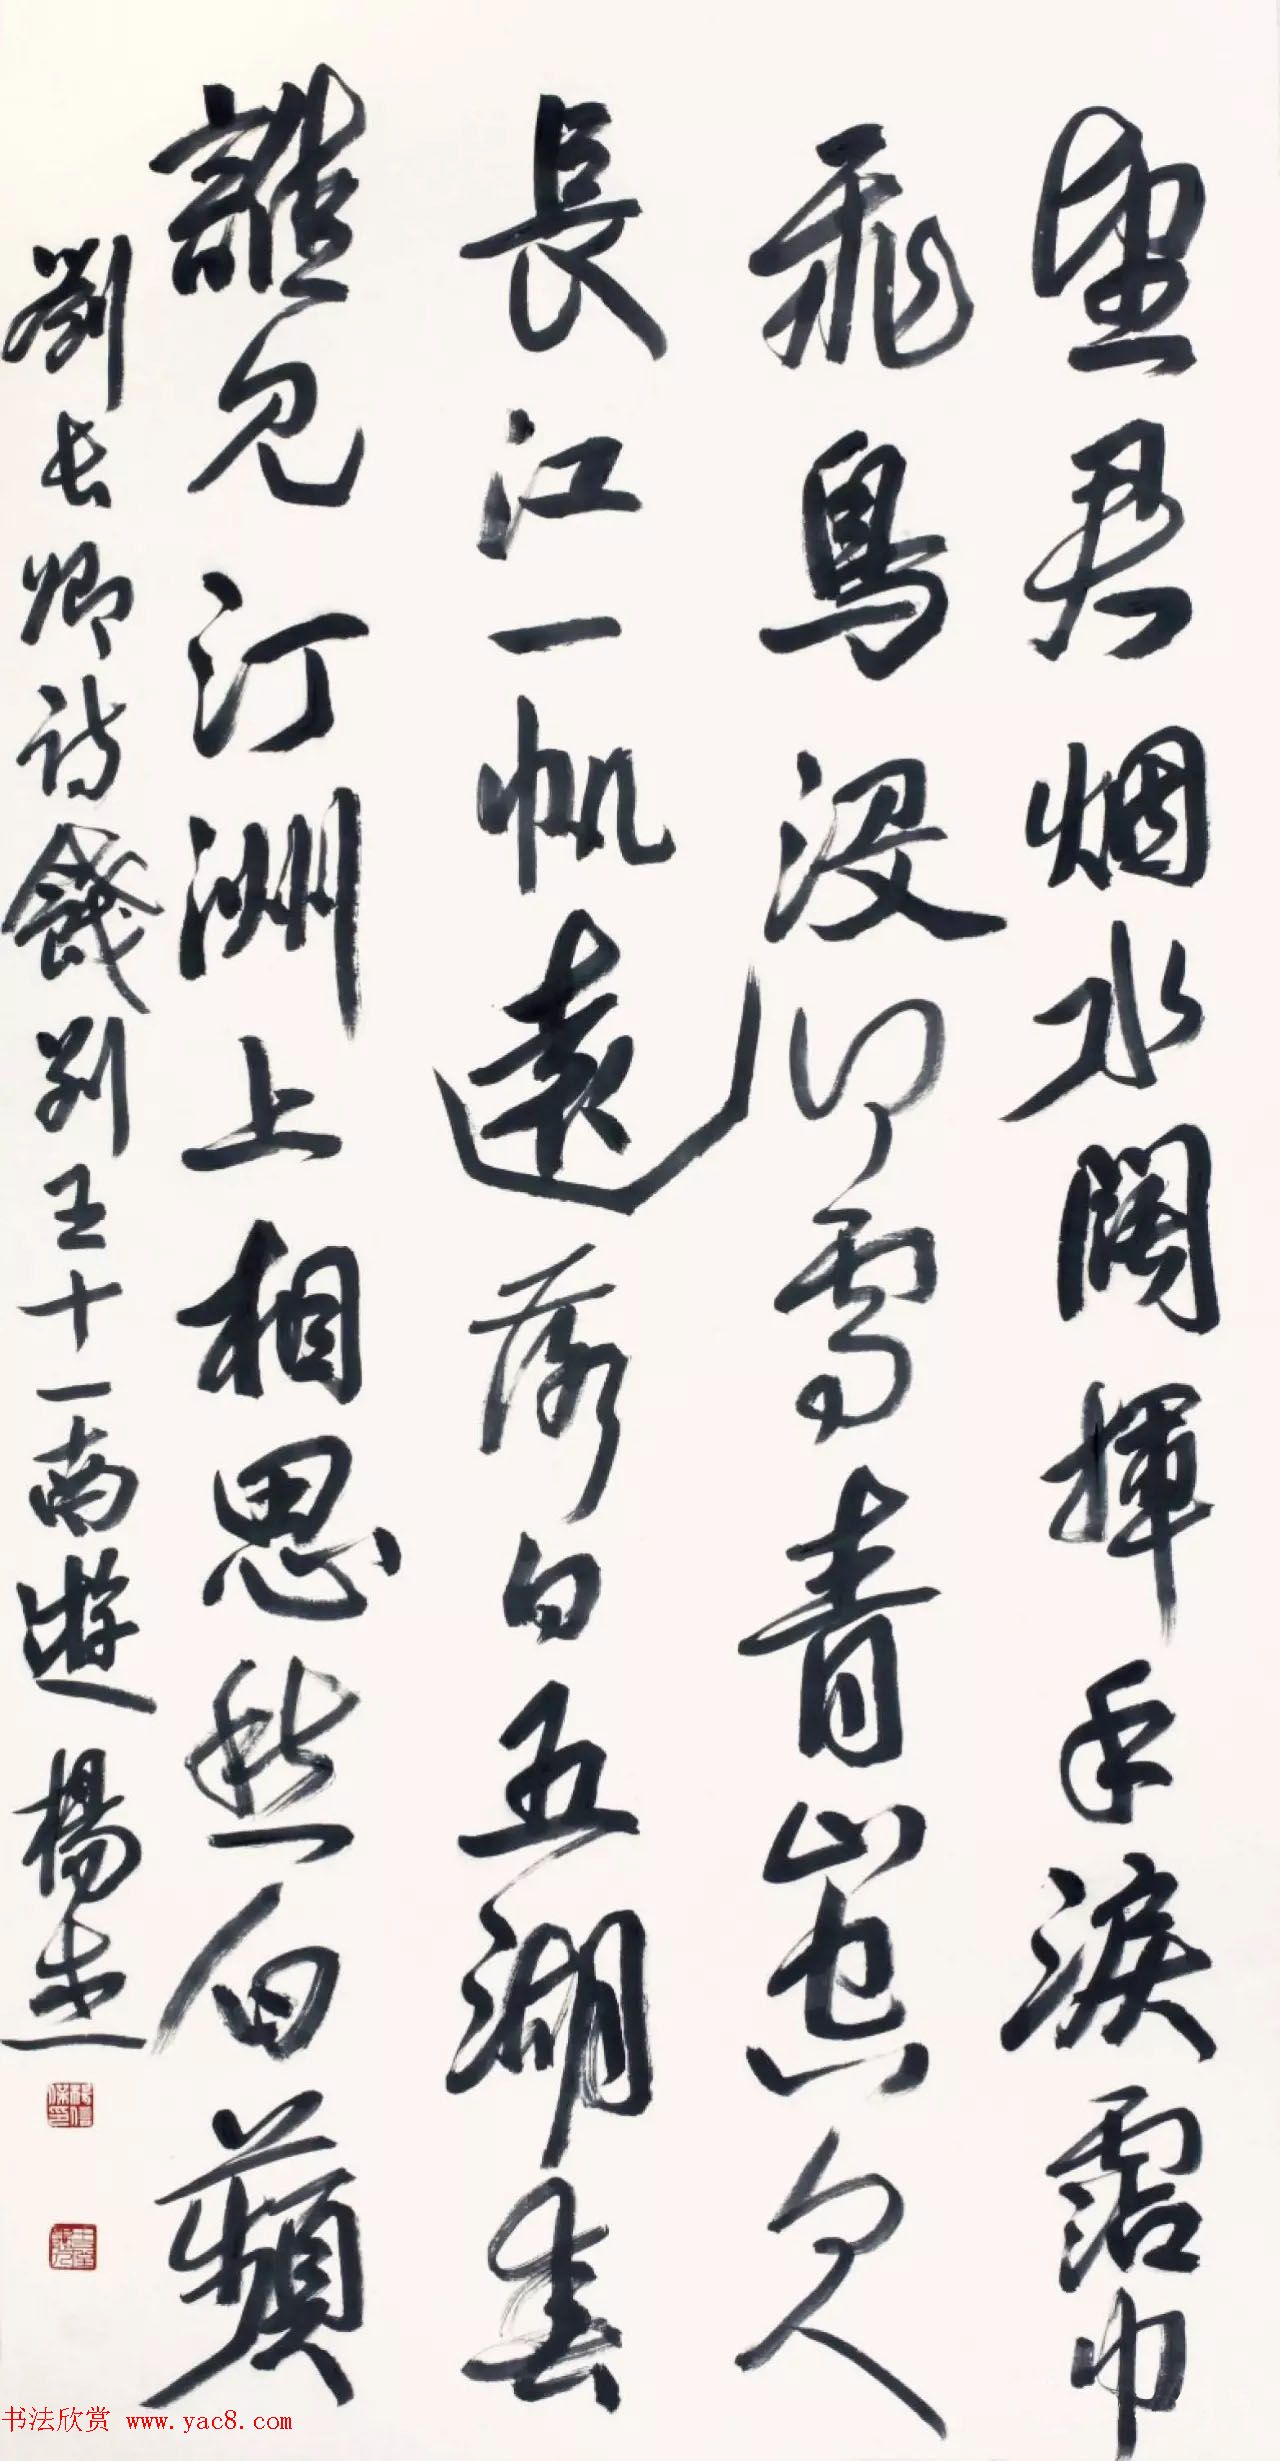 望君烟水闊揮手淚霑巾
飛鳥没何處青山空向人
長江一帆遠落日五湖春
誰見汀洲上相思愁白蘋
劉長卿詩餞别王十一南遊 楊杰
书法欣赏 www.yac8.com